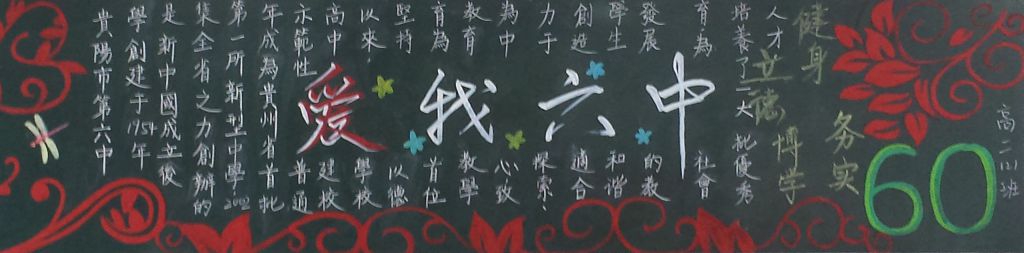 貴陽市第六中
學創建于1954年
是新中國成立後
集全省之力創辦的
第一所新型中學2002
年成為貴州省首批
示範性普通
高中建校
以來學校
堅持以德
育為首位
教育教學
為中心致
力于探索、
創造適合
學生和諧
發展的教
育為社會
培養了一大批優秀
人才
愛我六中
立德
健身
博學
務實
60
高二班